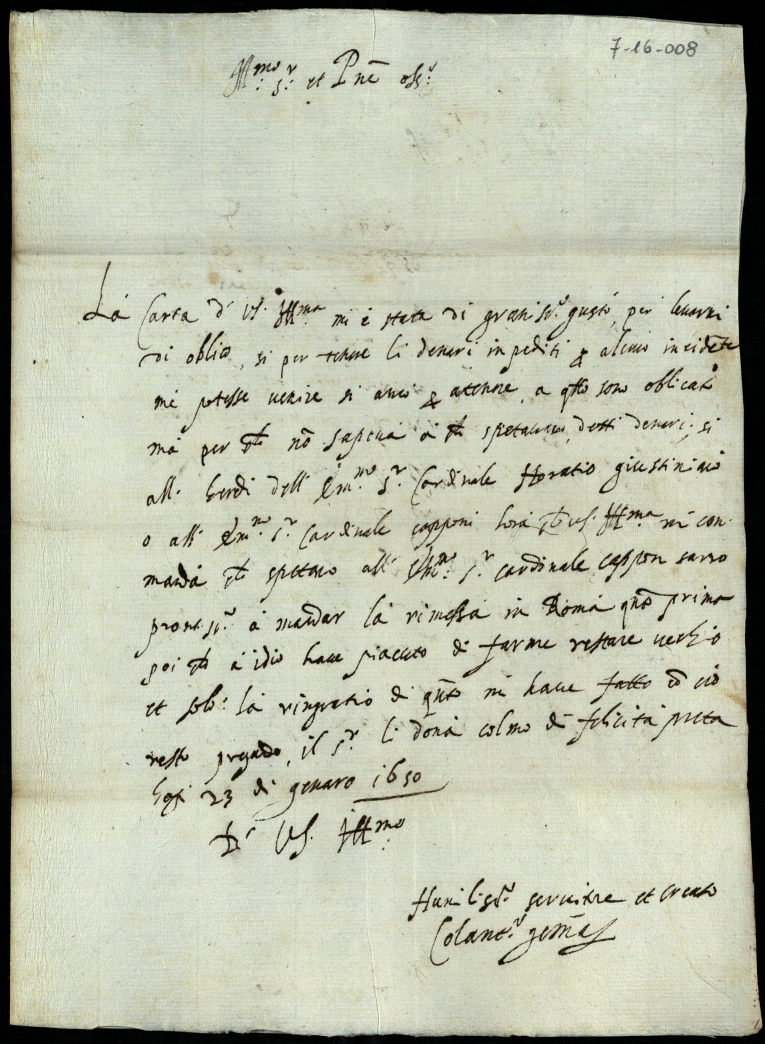 7-16-008
Ill.mo S.r et P.ne oss.r
La Carta di VS. Ill.ma mi è stata di granis.r gusto, per levarmi
di oblico, si per tenere li denari inpediti p alcuno incidēte
mi potesse venire si anco p atenere, a q̄llo sono oblicato
ma per q̄l nō sapeva a q̄l spetavano, detti denari, si
all. heredi dell Em.mo S.r Cardinale Horatio giustiniano
o all. Em.mo S.r Cardinale capponi hora VS. Ill.ma mi con-
manda spettano all. Em.mo S.r cardinale cappon sarro
pront.s.r a mandar la rimessa in Roma qnto prima
poi a idio have piaciuto di farme restare vechio
et solo. la ringratio di qnto mi have fatto cō ciò
resto pregādo, il S.r li dona colmo di felicita
hogi 23 di genaro 1650
Di VS. Ill.mo
Humilis.r servitore et creato
Colant.r